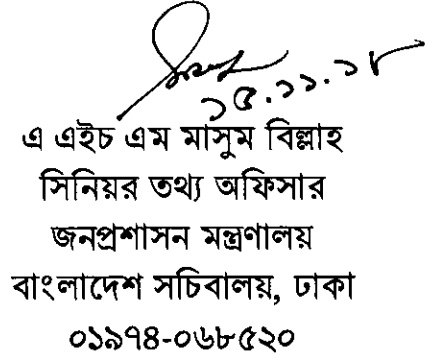 ১৫.১১.১৮
এ এইচ এম মাসুম বিল্লাহ
সিনিয়র তথ্য অফিসার
জনপ্রশাসন মন্ত্রণালয়
বাংলাদেশ সচিবালয়, ঢাকা
০১৯৭৪-০৬৮৫২০